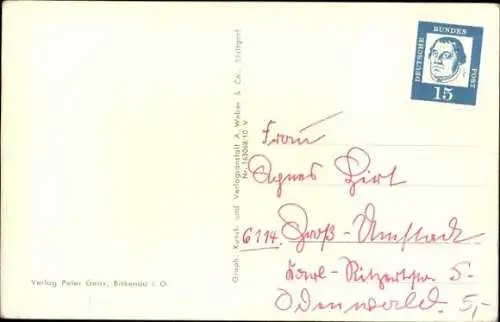 DEUTSCHE
BUNDES
POST
15
Graph. Kunst- und Verlagsanstalt A. Weber & Co., Stuttgart
Nr. 163068/10 V
Frau
Agnes Hirt
6114 Groß-Umstadt
Karl-Ritzertstr. 5
Odenwald.
5,-
Verlag Peter Geiss, Birkenau i. O.